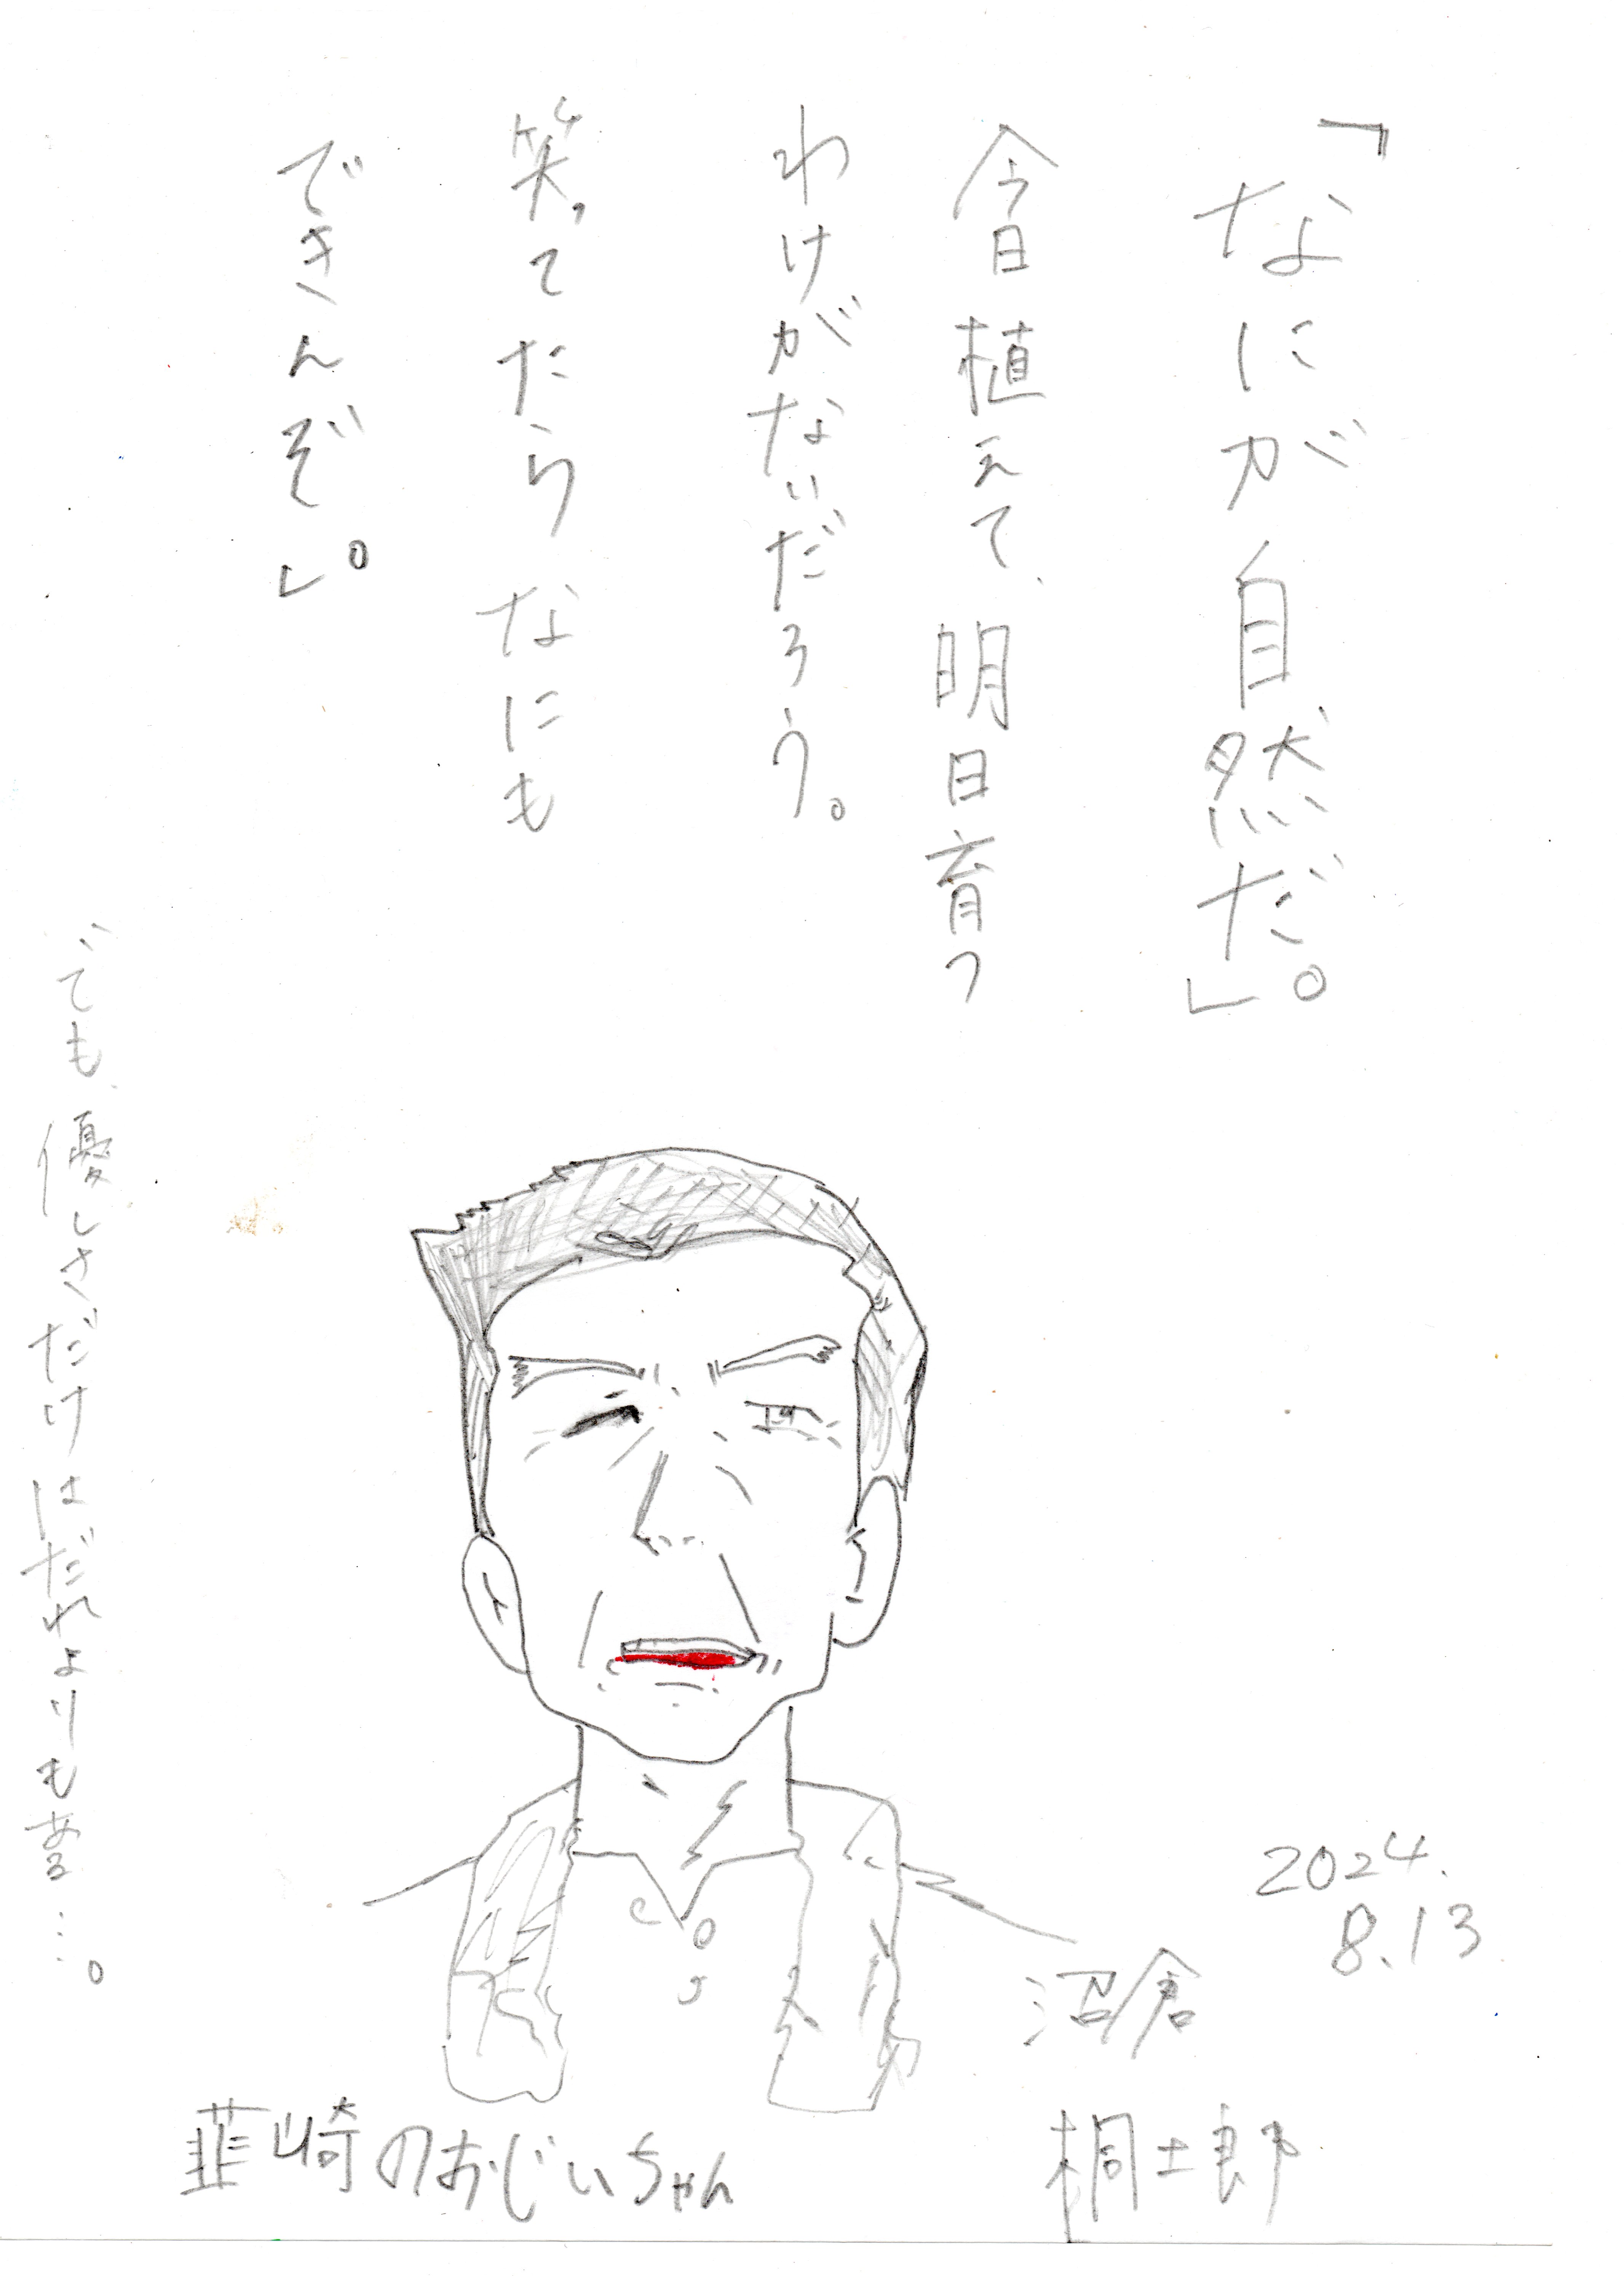 「なにが自然だ。」
今日植えて、明日育つ
わけがないだろう。
笑ってたらなにも
できんぞ。」
でも、優しさだけはだれよりもある…。
2024.
8.13
沼倉
桐士郎
韮崎のおじいちゃん